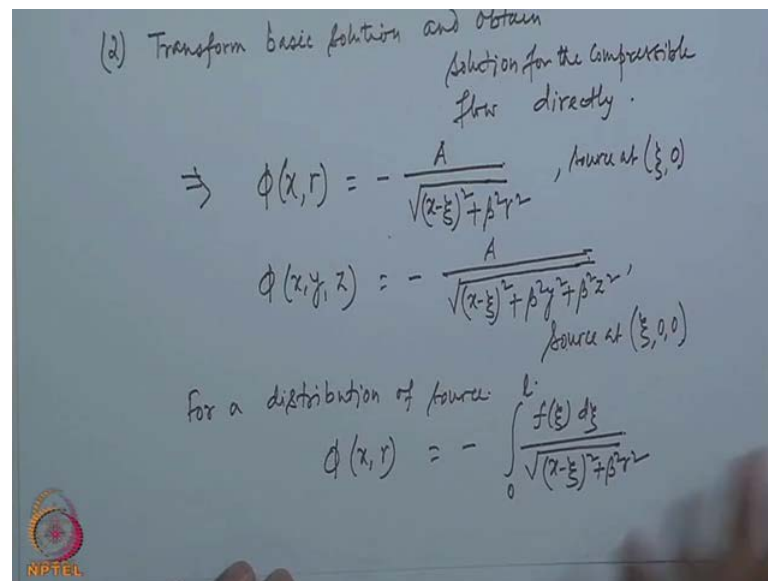 (2) Transform basic solution and obtain
solution for the compressible
flow directly.
⇒ φ(x,r) = - A / √((x-ξ)² + β²r²) , source at (ξ,0)
φ(x,y,z) = - A / √((x-ξ)² + β²y² + β²z²) ,
source at (ξ,0,0)
For a distribution of source.
φ(x,r) = - ∫₀ˡ f(ξ) dξ / √((x-ξ)² + β²r²)
NPTEL